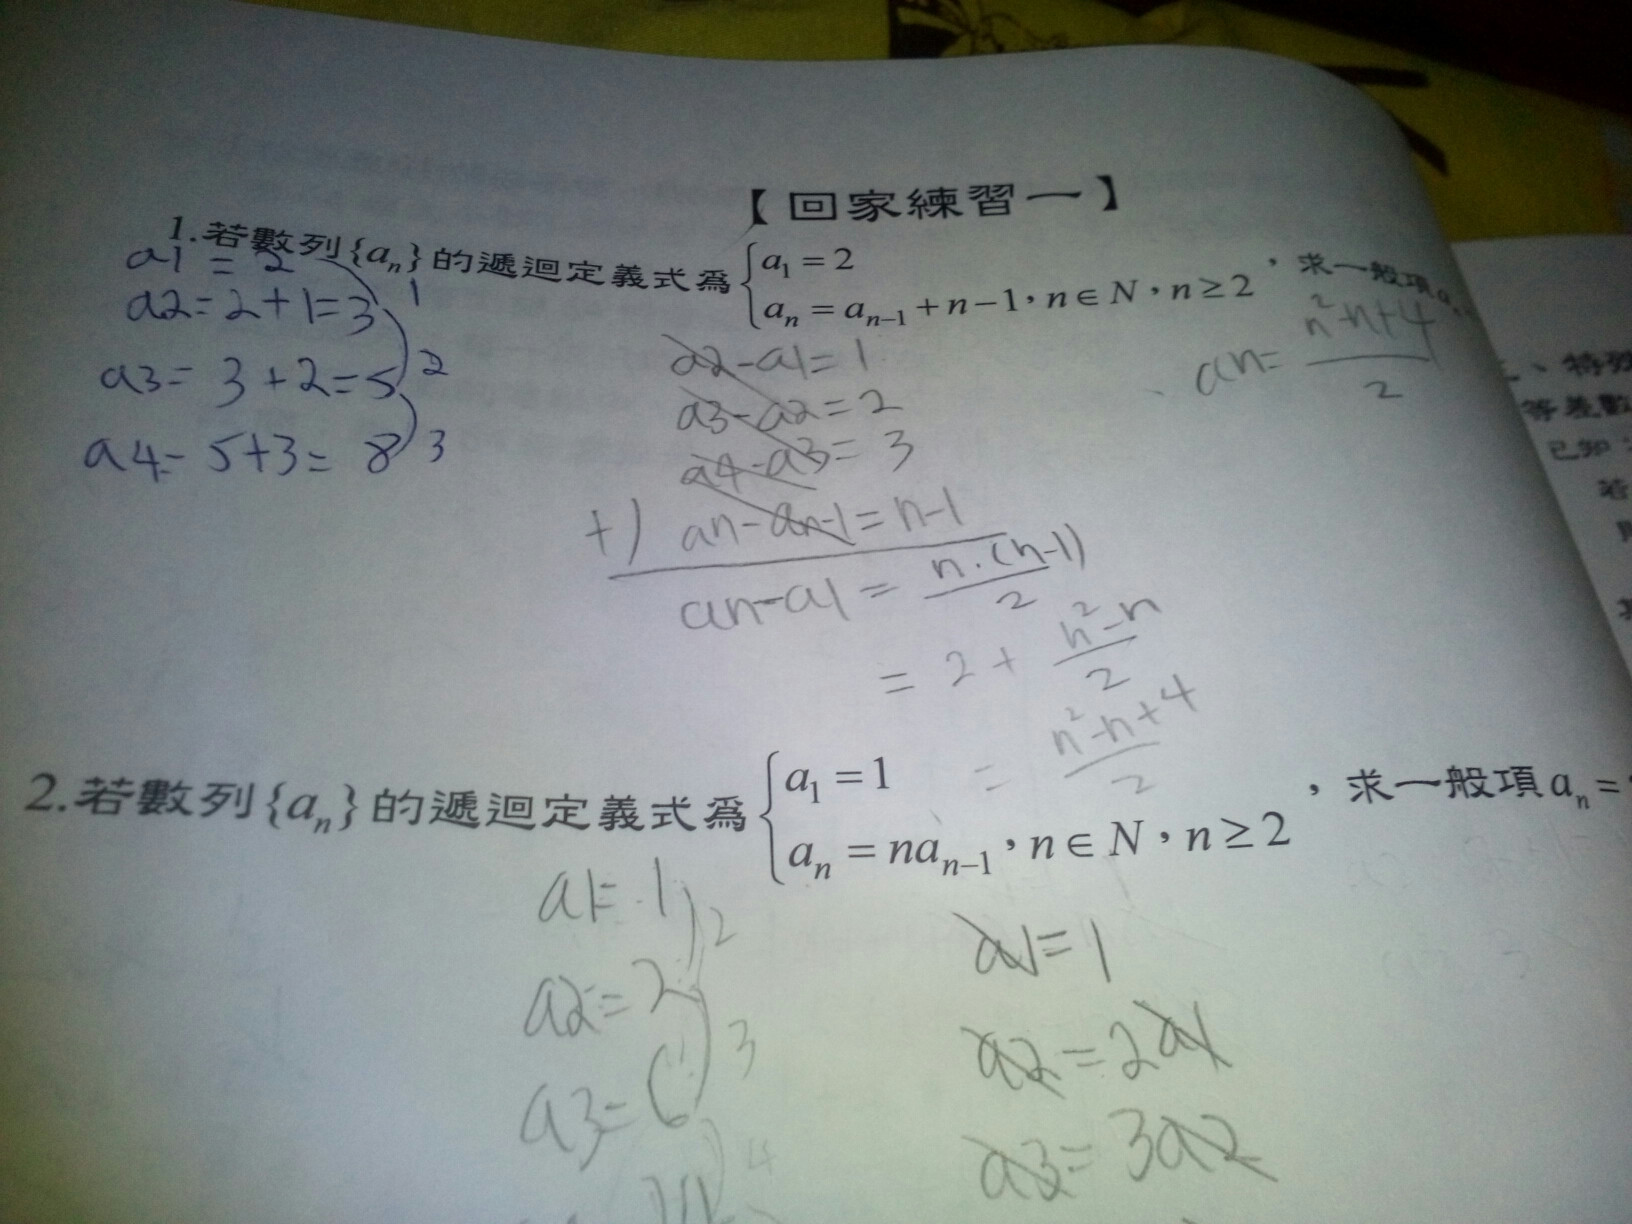 【回家練習一】
1.若數列{aₙ}的遞迴定義式為 { a₁ = 2
aₙ = aₙ₋₁ + n − 1，n ∈ N，n ≥ 2 ，求一般項
a1 = 2
a2 = 2+1=3 1
a3 = 3+2=5 2
a4 = 5+3= 8 3
a2-a1=1
a3-a2=2
a4-a3=3
+) an-an-1=n-1
an-a1 = n·(n-1)/2
= 2 + n²-n/2
= n²-n+4/2
an= n²-n+4/2
2.若數列{aₙ}的遞迴定義式為 { a₁ = 1
aₙ = naₙ₋₁，n ∈ N，n ≥ 2 ，求一般項 aₙ =
a1= 1
2
a2= 2
3
a3= 6
4
a1=1
a2=2a1
a3=3a2
特殊
等差數
已知
若